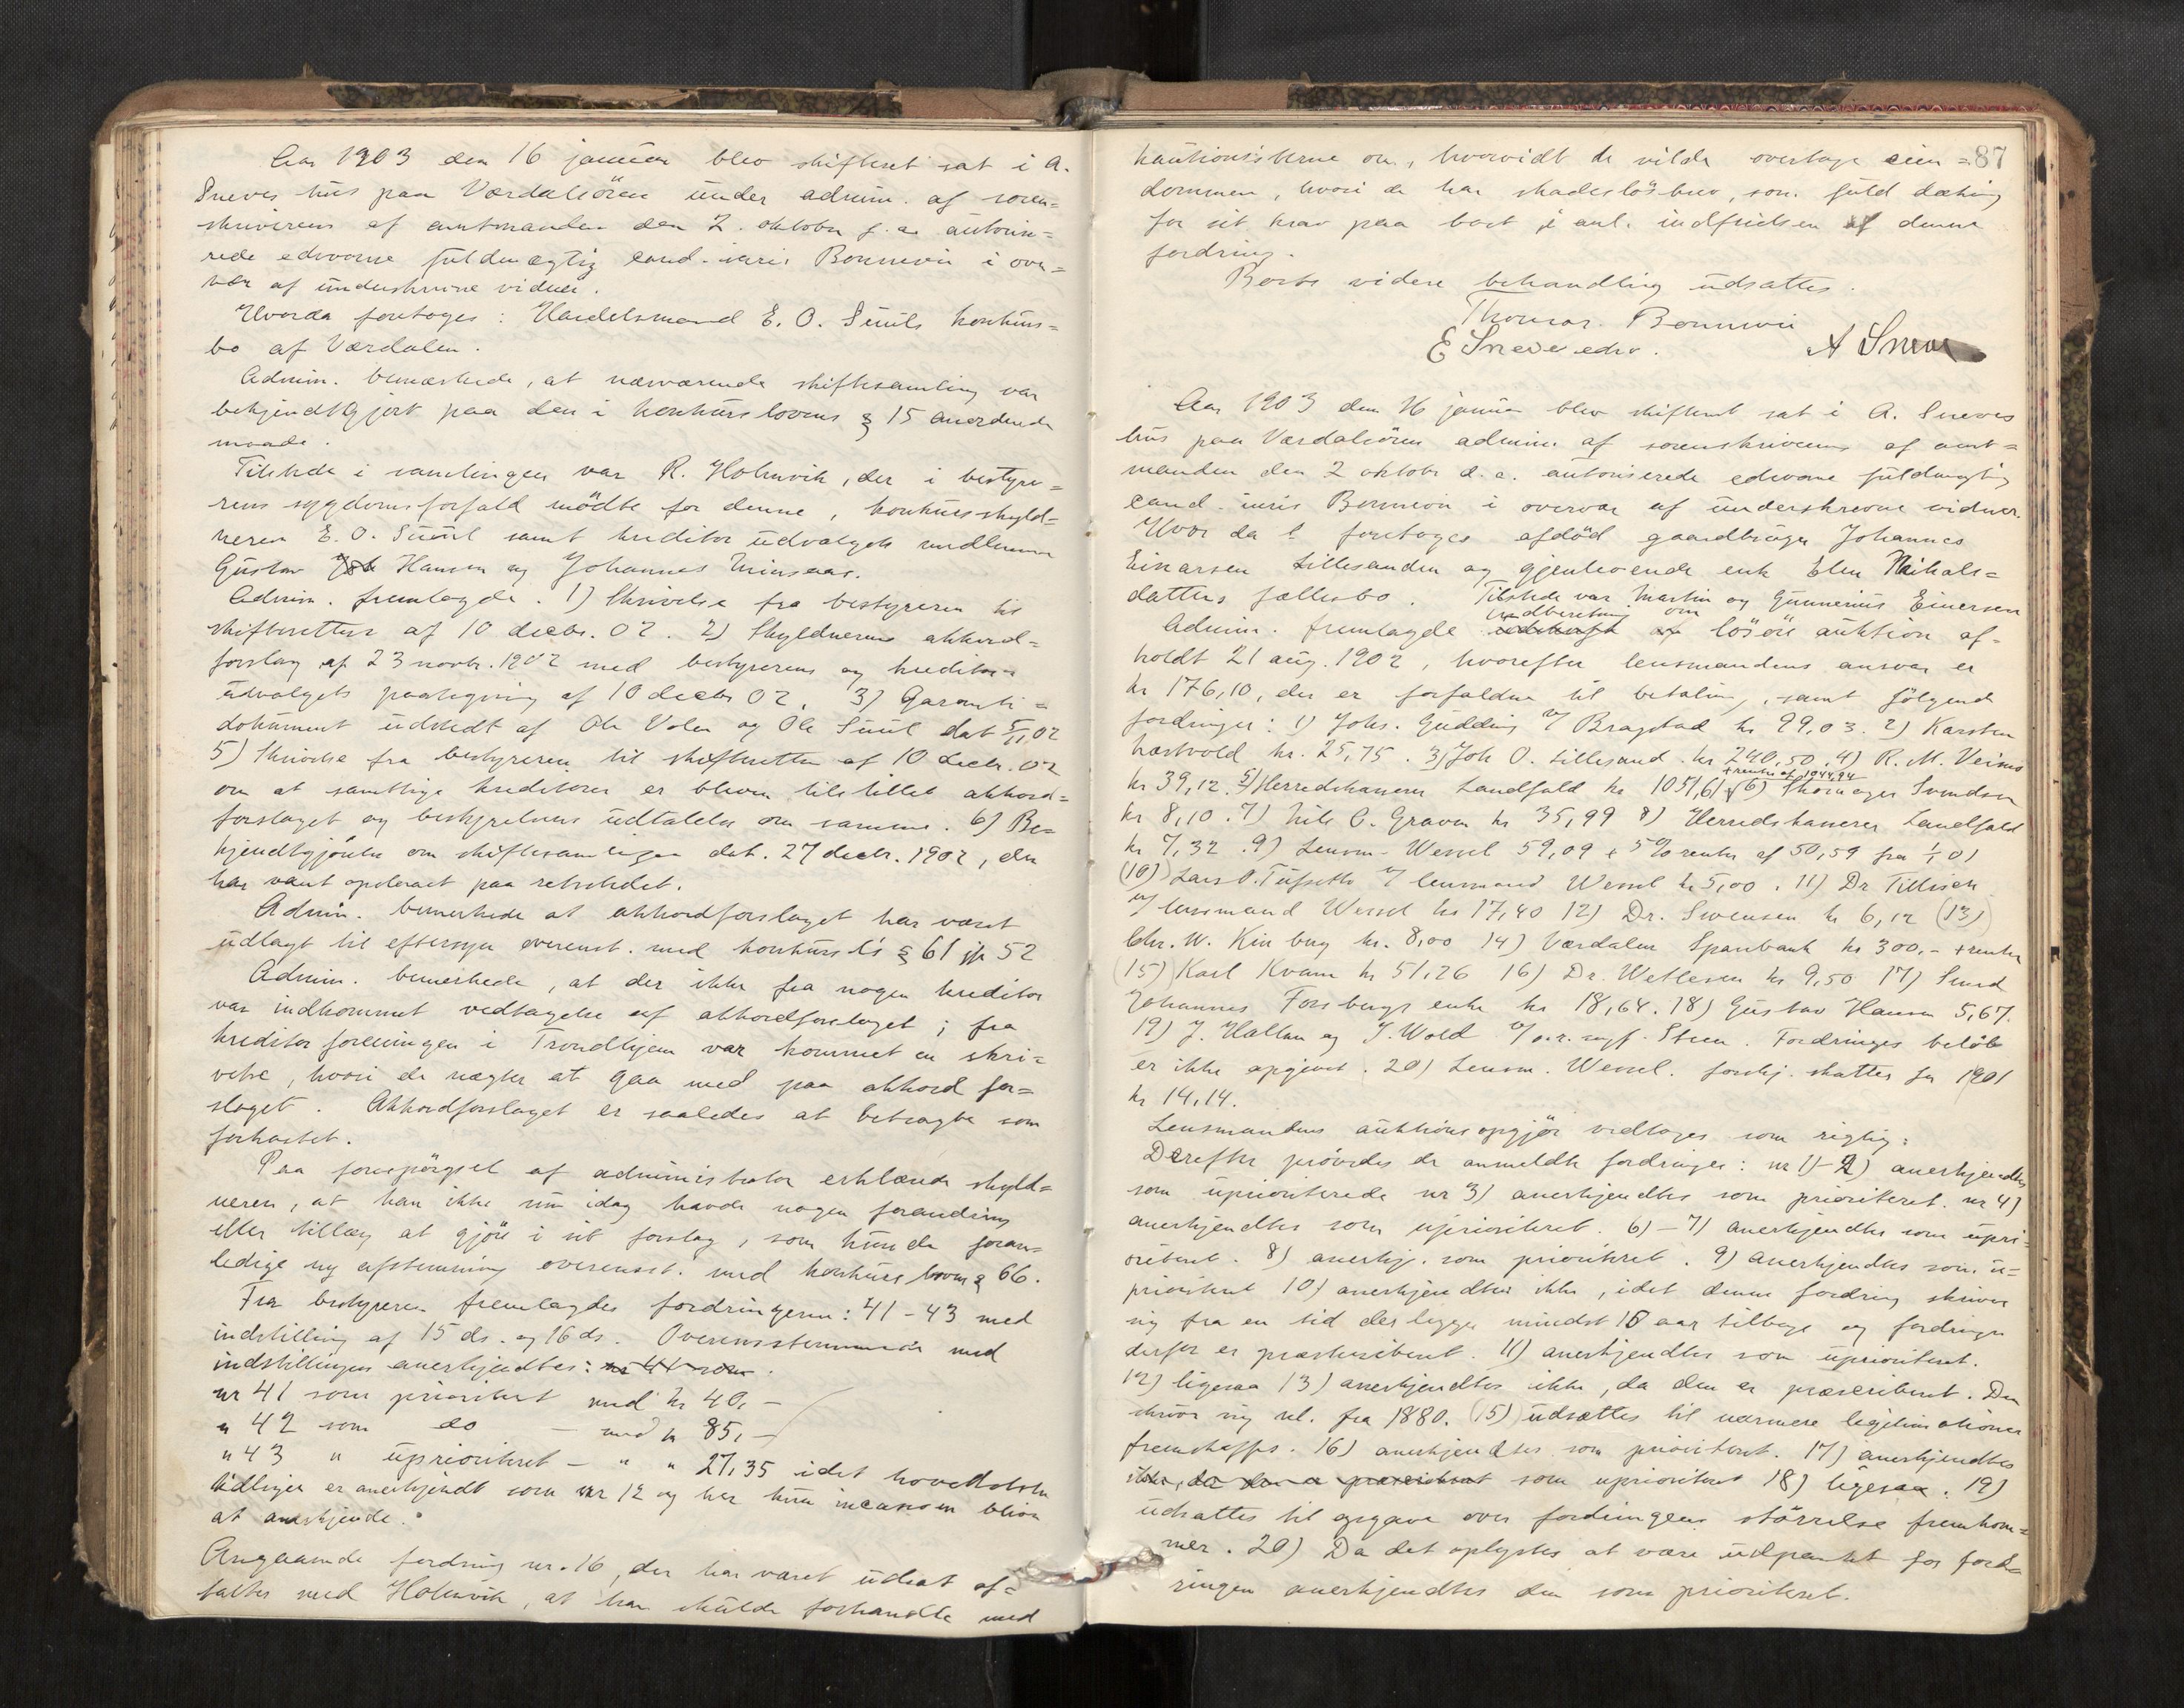 Aar 1903 den 16 januar blev skifteret sat i A.
Sneves hus paa Værdalsören under admin. af soren=
skriverens af amtmanden den 2. oktober f.a. autorise=
rede edsvorne fuldmægtig cand. juris Bonnevie i over=
vær af underskrevne vidner.
Hvorda foretoges: Handelsmand E. O. Suuls konkurs=
bo af Værdalen.
Admin. bemærkede, at nærværende skiftesamling var
bekjendtgjort paa den i konkurslovens § 15 anordnede
maade.
Tilstede i samlingen var R. Holmvik, der i bestyre=
rens sygdomsforfald mödte for denne, konkursskyld=
neren E. O. Suul samt kreditorudvalgets medlemmer
Gustav Hansen og Johannes Minsaas.
Admin. fremlagde. 1) Skrivelse fra bestyreren til
skifteretten af 10 decbr. 02. 2) Skyldnerens akkord=
forslag af 23 novbr. 1902 med bestyrerens og kreditor=
udvalgets paategning af 10 decbr 02. 3) Garanti=
dokument udstedt af Ole Volen og Ole Suul dat 5/11 02
5) Skrivelse fra bestyreren til skifteretten af 10 decbr. 02
om at samtlige kreditorer er bleven tilstillet akkord=
forslaget og bestyrelsens udtalelse om samme. 6) Be=
kjendtgjörelse om skiftesamlingen dat. 27 decbr. 1902, der
har været opslaaet paa retsstedet.
Admin. bemerkede at akkordforslaget har været
udlagt til eftersyn overenst. med konkurs l's § 61 jfr 52
Admin. bemerkede, at der ikke fra nogen kreditor
var indkommet vedtagelse af akkordforslaget; fra
kreditorforeningen i Trondhjem var kommet en skri=
velse, hvori de negter at gaa med paa akkord for=
slaget. Akkordforslaget er saaledes at betragte som
forkastet.
Paa forespörgsel af administrator erklærede skyld=
neren, at han ikke nu idag havde nogen forandring
eller tillæg at gjöre i sit forslag, som kunde foran=
ledige ny afstemning overensst. med konkurslovens § 66.
Fra bestyreren fremlagdes fordringerne: 41-43 med
indstilling af 15 ds. og 16 ds. Overensstemmende med
indstillingen anerkjendtes: nr 41 som
nr 41 som prioritert med kr 40,-
" 42 som do - med kr 85,-
" 43 " uprioritert - " " 27,35 idet hovedstolen
tidligere er anerkjendt som nr 12 og her kun incasson bliver
at anerkjende.
Angaaende fordring nr. 16, der har været udsat af=
taltes med Holmvik, at han skulde forhandle med
87
kautionisterne om, hvorvidt de vilde overtage eien=
dommen, hvori de har skadeslösbrev, som fuld dækning
for sit krav paa boet i anl. indfrielsen af denne
fordring.
Boets videre behandling udsattes.
Thomas Bonnevie
E Sneve edsv. A Sneve
Aar 1903 den 16 januar blev skifteret sat i A. Sneves
hus paa Værdalsören admin. af sorenskriverens af amt=
manden den 2 oktobr d.a. autoriserede edsvorne fuldmægtig
cand. juris Bonnevie i overvær af underskrevne vidner.
Hvor da foretoges afdöd gaardbruger Johannes
Einarsen Lillesanden og gjenlevende enke Elen Mikals=
datters fællesbo. Tilstede var Martin og Gunnerius Einersen
Indberetning om
Admin. fremlagde udskrift af lösöre auktion af=
holdt 21 aug. 1902, hvorefter lensmandens ansvar er
kr 176,10, der er forfalden til betaling, samt fölgende
fordringer: 1) Johs. Gudding v/ Bragstad kr 99,03. 2) Karsten
kr. 25,75. 3) Joh O. Lillesand kr 240,50. 4) R. M. Veimo
+ renter af 1044,94
kr 39,12. 5) Herredskasserer Landfald kr 1051,61 6) Skomager Svendsen
kr 8,10. 7) Nils O. Graven kr 35,99 8) Herredskasserer Landfald
kr 7,32. 9) Lensm. Wessel 59,09 + 5% renter af 50,59 fra 1/1 01
(10) Lars O. Tufseth v/ lensmand Wessel kr 5,00. 11) Dr Tillisch
v/ lensmand Wessel kr 17,40 12) Dr. Svensen kr 6,12 (13)
Chr. W. Kinberg kr. 8,00 14) Værdalens Sparebank kr 300,- + renter
(15) Karl Kvam kr 51,26 16) Dr. Wetlesen kr 9,50 17) Smed
Johannes Forsbergs enke kr 18,64. 18) Gustav Hansen 5,67.
19) J. Hallem og J. Wold v/ o.r. sagf. Steen. Fordringes belöb
er ikke opgivet. 20) Lensm. Wessel. forskj. skatter for 1901
kr 14,14.
Lensmandens auktionsopgjör vedtoges som rigtig.
Derefter prövedes de anmeldte fordringer: nr 1)-2) anerkjendtes
som uprioriterede nr 3) anerkjendtes som prioriteret. nr 4)
anerkjendtes som uprioriteret. 6)-7) anerkjendtes som upri=
oriteret. 8) anerkj. som prioriteret. 9) anerkjendtes som u=
prioriteret 10) anerkjendtes ikke, idet denne fordring skriver
sig fra en tid der ligger mindst 18 aar tilbage og fordringen
derfor er præskriberet. 11) anerkjendtes som uprioriteret.
12) ligesaa 13) anerkjendtes ikke, da den er præscriberet. Den
skriver sig nl. fra 1880. (15) udsættes til nærmere legitimationer
fremskaffes. 16) anerkjendtes som prioriteret. 17) anerkjendtes
ikke, da den er præscriberet som uprioriteret 18) ligesaa. 19)
udsattes til opgave over fordringens störrelse fremkom=
mer. 20) Da det oplystes at være udpantet for ford=
ringen anerkjendtes den som prioriteret.